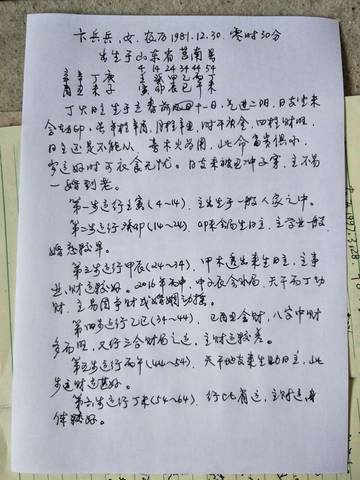 卞兵兵，女，农历1981.12.30.零时30分
出生于山东省莒南县
4 14 24 34 44 54
辛 辛 丁 庚 壬 癸 甲 乙 丙 丁
酉 丑 未 子 寅 卯 辰 巳 午 未
丁火日主生于立春前十一日，先进二阳，日支坐未
库年柱辛酉，月柱辛丑，时干庚金，四柱财旺，
日主还是不能从，喜木火
岁运好时可衣食无忧。日支未被丑冲子穿，主不易
一婚到老。
第一步运行壬寅（4~14），主出生于一般人家之中。
第二步运行癸卯（14~24），卯未合局生日主，主学业一般，
婚恋较早。
第三步运行甲辰（24~34），甲木透出来生日主，主事
业，财运较好。2016年丙申，申子辰会水局，天干丙丁劫
财，主易因争财或婚姻动荡。
第四步运行乙巳（34~44），巳酉丑会财，八字中财
多而旺，又行三合财局之运，主财运较差。
第五步运行丙午（44~54），天干地支来生助日主，此
步运财运甚好。
第六步运行丁未（54~64），行比肩运，主财运身
体较好。